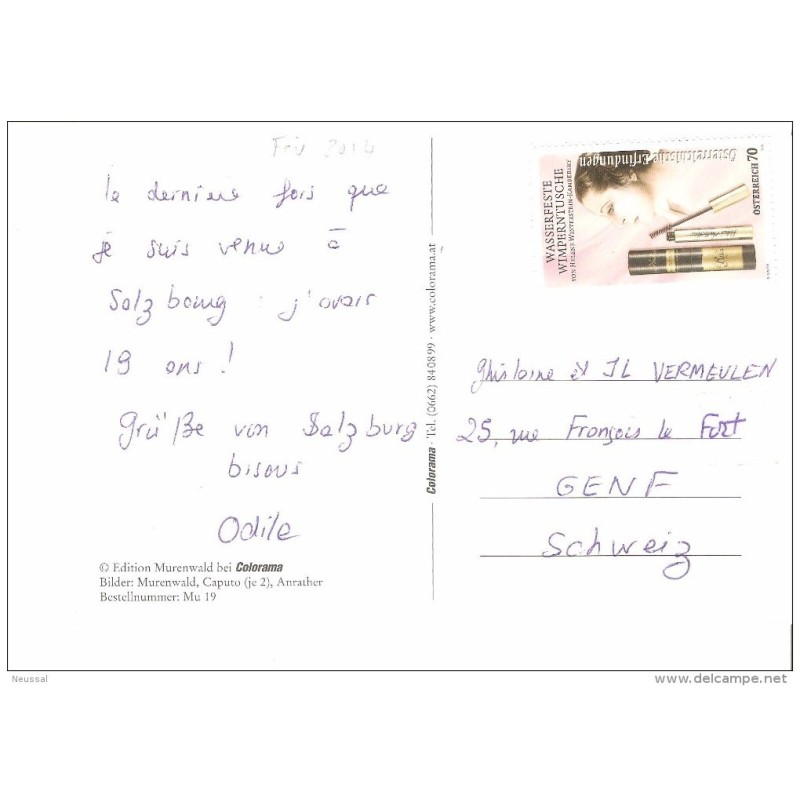 Fév 2014
la dernière fois que
je suis venue à
Salzbourg : j'avais
19 ans !
Grüße von Salzburg
bisous
Odile
© Edition Murenwald bei Colorama
Bilder: Murenwald, Caputo (je 2), Anrather
Bestellnummer: Mu 19
Colorama · Tel. (0662) 840899 · www.colorama.at
Österreichische Erfindungen
WASSERFESTE
WIMPERNTUSCHE
ÖSTERREICH 70
Ghislaine et JL VERMEULEN
25, rue François le Fort
GENF
Schweiz
Neussal
www.delcampe.net